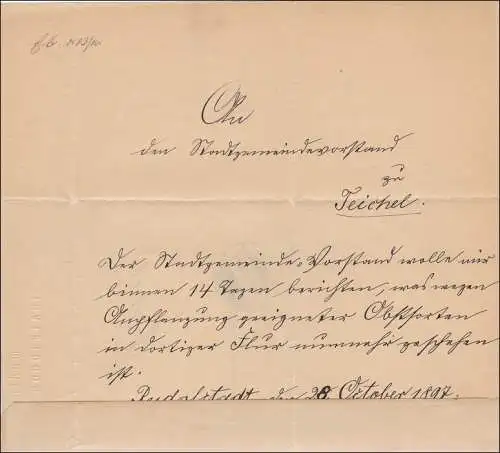 An
den Stadtgemeindevorstand
zu
Teichel.
Der Stadtgemeinde-Vorstand wolle mir
binnen 14 Tagen berichten, was wegen
Anpflanzung geeigneter Obstsorten
in dortiger Flur nunmehr geschehen
ist.
Rudolstadt, den 28 October 1897.